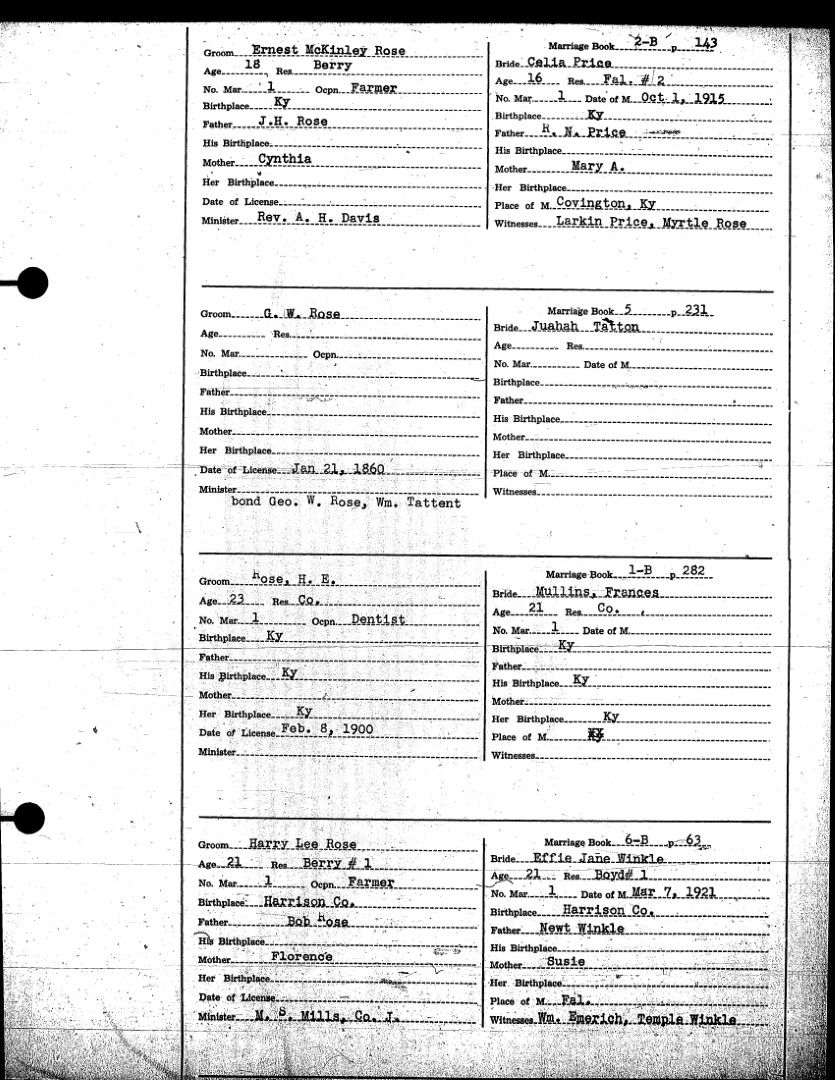 Groom Ernest McKinley Rose
Age 18 Res Berry
No. Mar. 1 Ocpn. Farmer
Birthplace Ky
Father J.H. Rose
His Birthplace
Mother Cynthia
Her Birthplace
Date of License
Minister Rev. A. H. Davis
Marriage Book 2-B p. 143
Bride Celia Price
Age 16 Res Fal. # 2
No. Mar. 1 Date of M. Oct 1, 1915
Birthplace Ky
Father H. N. Price
His Birthplace
Mother Mary A.
Her Birthplace
Place of M. Covington, Ky
Witnesses Larkin Price, Myrtle Rose
Groom G. W. Rose
Age Res.
No. Mar. Ocpn.
Birthplace
Father
His Birthplace
Mother
Her Birthplace
Date of License Jan 21, 1860
Minister
bond Geo. W. Rose, Wm. Tattent
Marriage Book 5 p. 231
Bride Juahah Tatton
Age Res.
No. Mar. Date of M.
Birthplace
Father
His Birthplace
Mother
Her Birthplace
Place of M.
Witnesses
Groom Rose, H. E.
Age 23 Res. Co.
No. Mar. 1 Ocpn. Dentist
Birthplace Ky
Father
His Birthplace Ky
Mother
Her Birthplace Ky
Date of License Feb. 8, 1900
Minister
Marriage Book 1-B p. 282
Bride Mullins, Frances
Age 21 Res. Co.
No. Mar. 1 Date of M.
Birthplace Ky
Father
His Birthplace Ky
Mother
Her Birthplace Ky
Place of M.
Witnesses
Groom Harry Lee Rose
Age 21 Res. Berry # 1
No. Mar. 1 Ocpn. Farmer
Birthplace Harrison Co.
Father Bob Rose
His Birthplace
Mother Florence
Her Birthplace
Date of License
Minister M. S. Mills, Co. J.
Marriage Book 6-B p. 63
Bride Effie Jane Winkle
Age 21 Res. Boyd# 1
No. Mar. 1 Date of M. Mar 7, 1921
Birthplace Harrison Co.
Father Newt Winkle
His Birthplace
Mother Susie
Her Birthplace
Place of M. Fal.
Witnesses Wm. Emerich, Temple Winkle